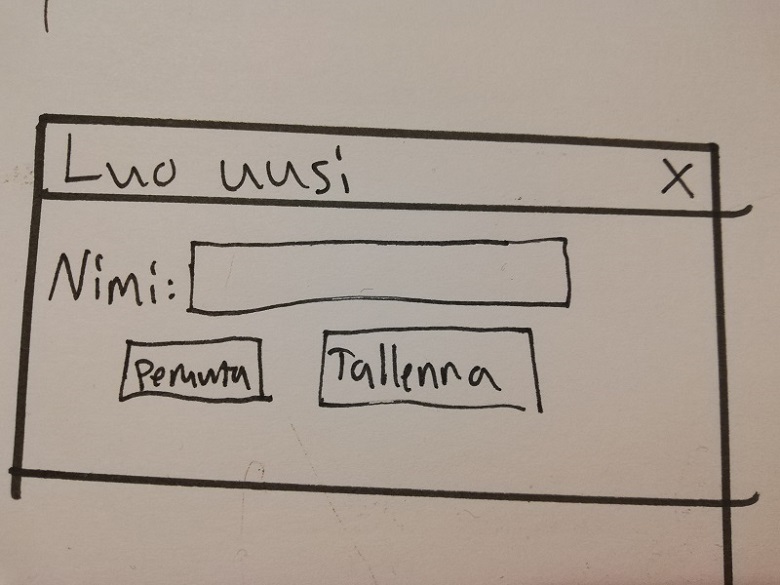 Luo uusi X
Nimi:
Peruuta Tallenna